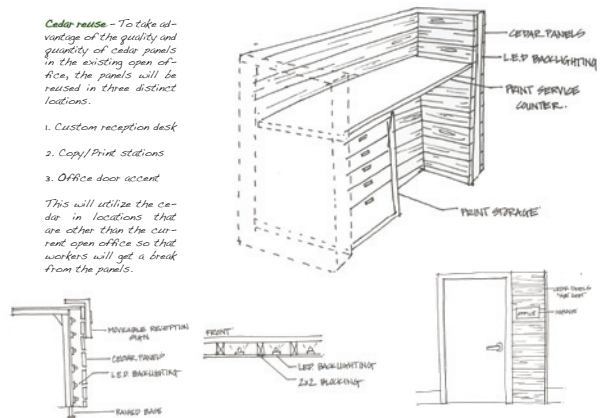 Cedar reuse – To take ad-
vantage of the quality and
quantity of cedar panels
in the existing open of-
fice, the panels will be
reused in three distinct
loations.
1. Custom reception desk
2. Copy/Print stations
3. Office door accent
This will utilize the ce-
dar in locations that
are other than the cur-
rent open office so that
workers will get a break
from the panels.
CEDAR PANELS
L.E.D BACKLIGHTING
PRINT SERVICE
COUNTER.
PRINT STORAGE
MOVEABLE RECEPTION
CEDAR PANELS
L.E.D BACKLIGHTING
RAISED BASE
FRONT
LED BACKLIGHTING
2x2 BLOCKING
CEDAR PANELS
OFFICE
SIGNAGE